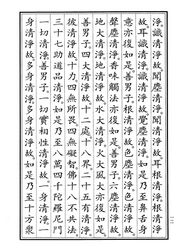 淨識清淨故聞塵清淨聞清淨故耳根清淨根清淨
故耳識清淨識清淨故覺塵清淨如是乃至鼻舌身
意亦復如是善男子根清淨故色塵清淨色清淨故
聲塵清淨香味觸法亦復如是善男子六塵清淨
故地大清淨地清淨故水大清淨火大風大亦復如
是善男子四大清淨故十二處十八界二十五有清淨
彼清淨故十力四無所畏四無礙智佛十八不共法
三十七助道品清淨如是乃至八萬四千陀羅尼門
一切清淨善男子一切實相性清淨故一身清淨一
身清淨故多身清淨多身清淨故如是乃至十方衆